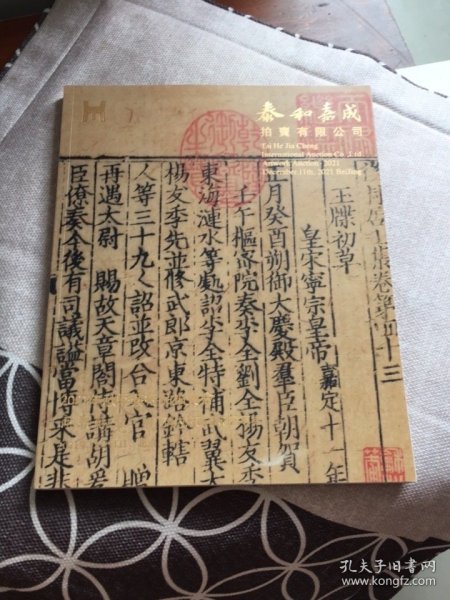 泰和嘉成
拍賣有限公司
Tai He Jia Cheng
International Auction Co.,Ltd
Artwork Auction · 2021
December.11th, 2021 BeiJing
卷第四十三
玉牒初草
皇宋寧宗皇帝 嘉定十一年
正月癸酉朔御大慶殿羣臣朝賀
壬午樞密院奏李全劉全楊友季
東海漣水等處詔李全特補武翼大
楊友季先並修武郎京東路鈐轄
人等三十九人詔並改合官 贈
再遇太尉 賜故天章閣待講胡爰
臣僚奏今後有司議諡當博采是非
孔夫子旧书网
www.kongfz.com